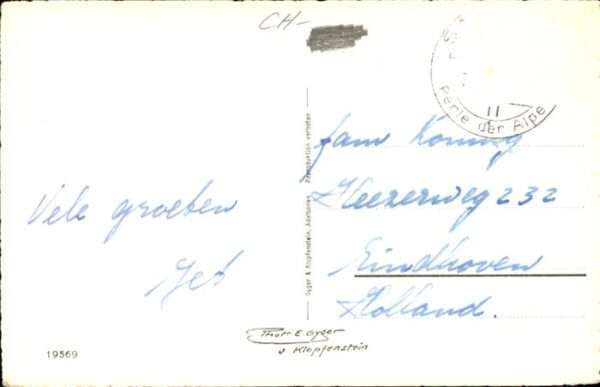 CH-
II
Perle der Alpe
Vele groeten
Jet
Gyger & Klopfenstein, Adelboden Reproduktion verboten
fam Koning
Heezerweg 232
Eindhoven
Holland.
Phot. E. Gyger
& Klopfenstein
19569